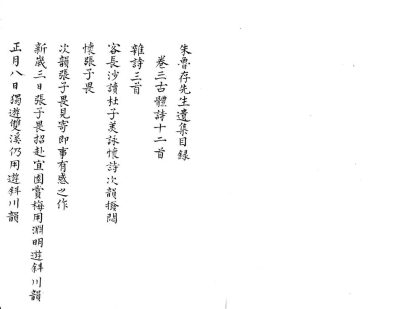 朱曹存先生遺集目錄
卷三古體詩十二首
雜詩三首
客長沙讀杜子美詠懷詩次韻撥悶
懷張子畏
次韻張子畏見寄即事有感之作
新歲三日張子畏招赴宜園賞梅用淵明遊斜川韻
正月八日獨遊雙溪仍用遊斜川韻